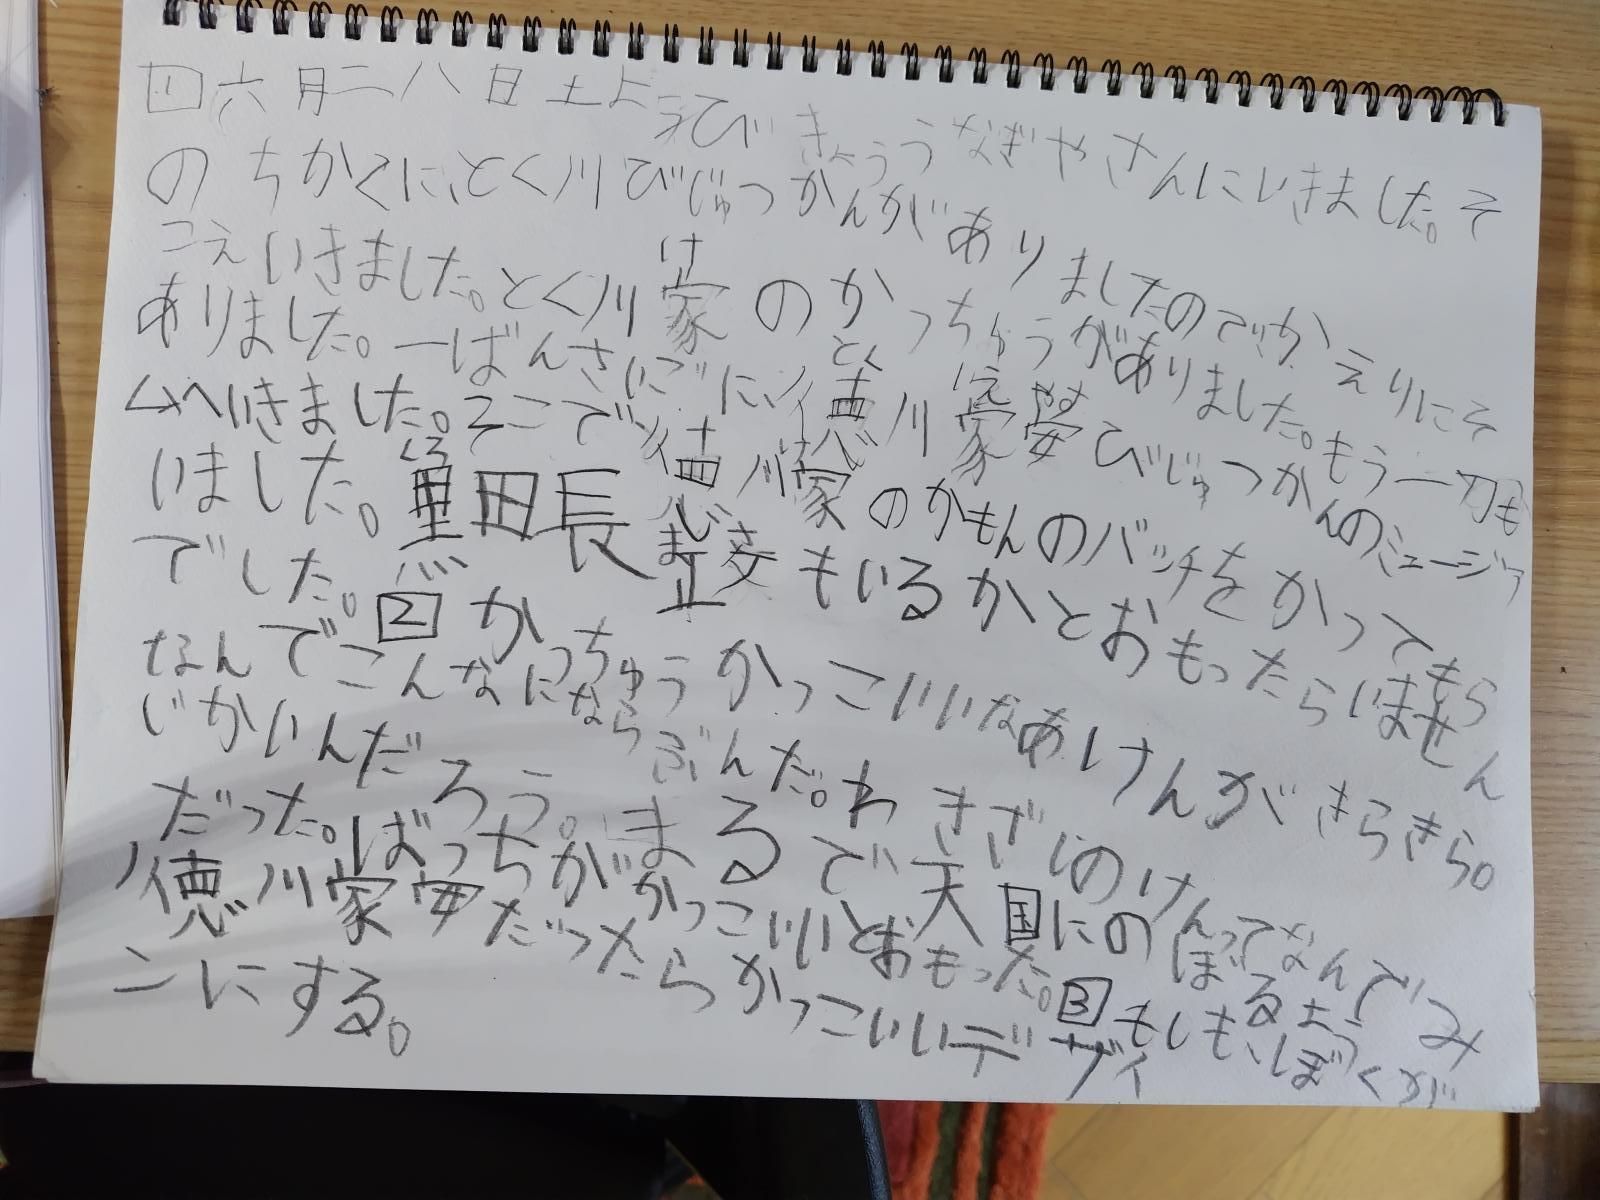 1 六月二八日土よ びきょううなぎやさんにいきました。そ
のちかくに、とく川びじゅつかんがありましたのでかえりにそ
こえいきました。とく川家のかっちゅうがありました。もう一つ刀も
ありました。一ばんさいごに、徳川家安びじゅつかんのミュージア
ムへいきました。そこで徳川家のかもんのバッチをかってもら
いました。黒田長政もいるかとおもったらいません
でした。2 かっちゅうかっこいいなあけんがきらきら。
なんでこんなにならぶんだ。わきざしのけんってなんでみ
じかいんだろう。まるで天国にのぼるよう
だった。ばっちがかっこいいとおもった。3 もしも、ぼくが
徳川家安だったらかっこいいデザイ
ンにする。